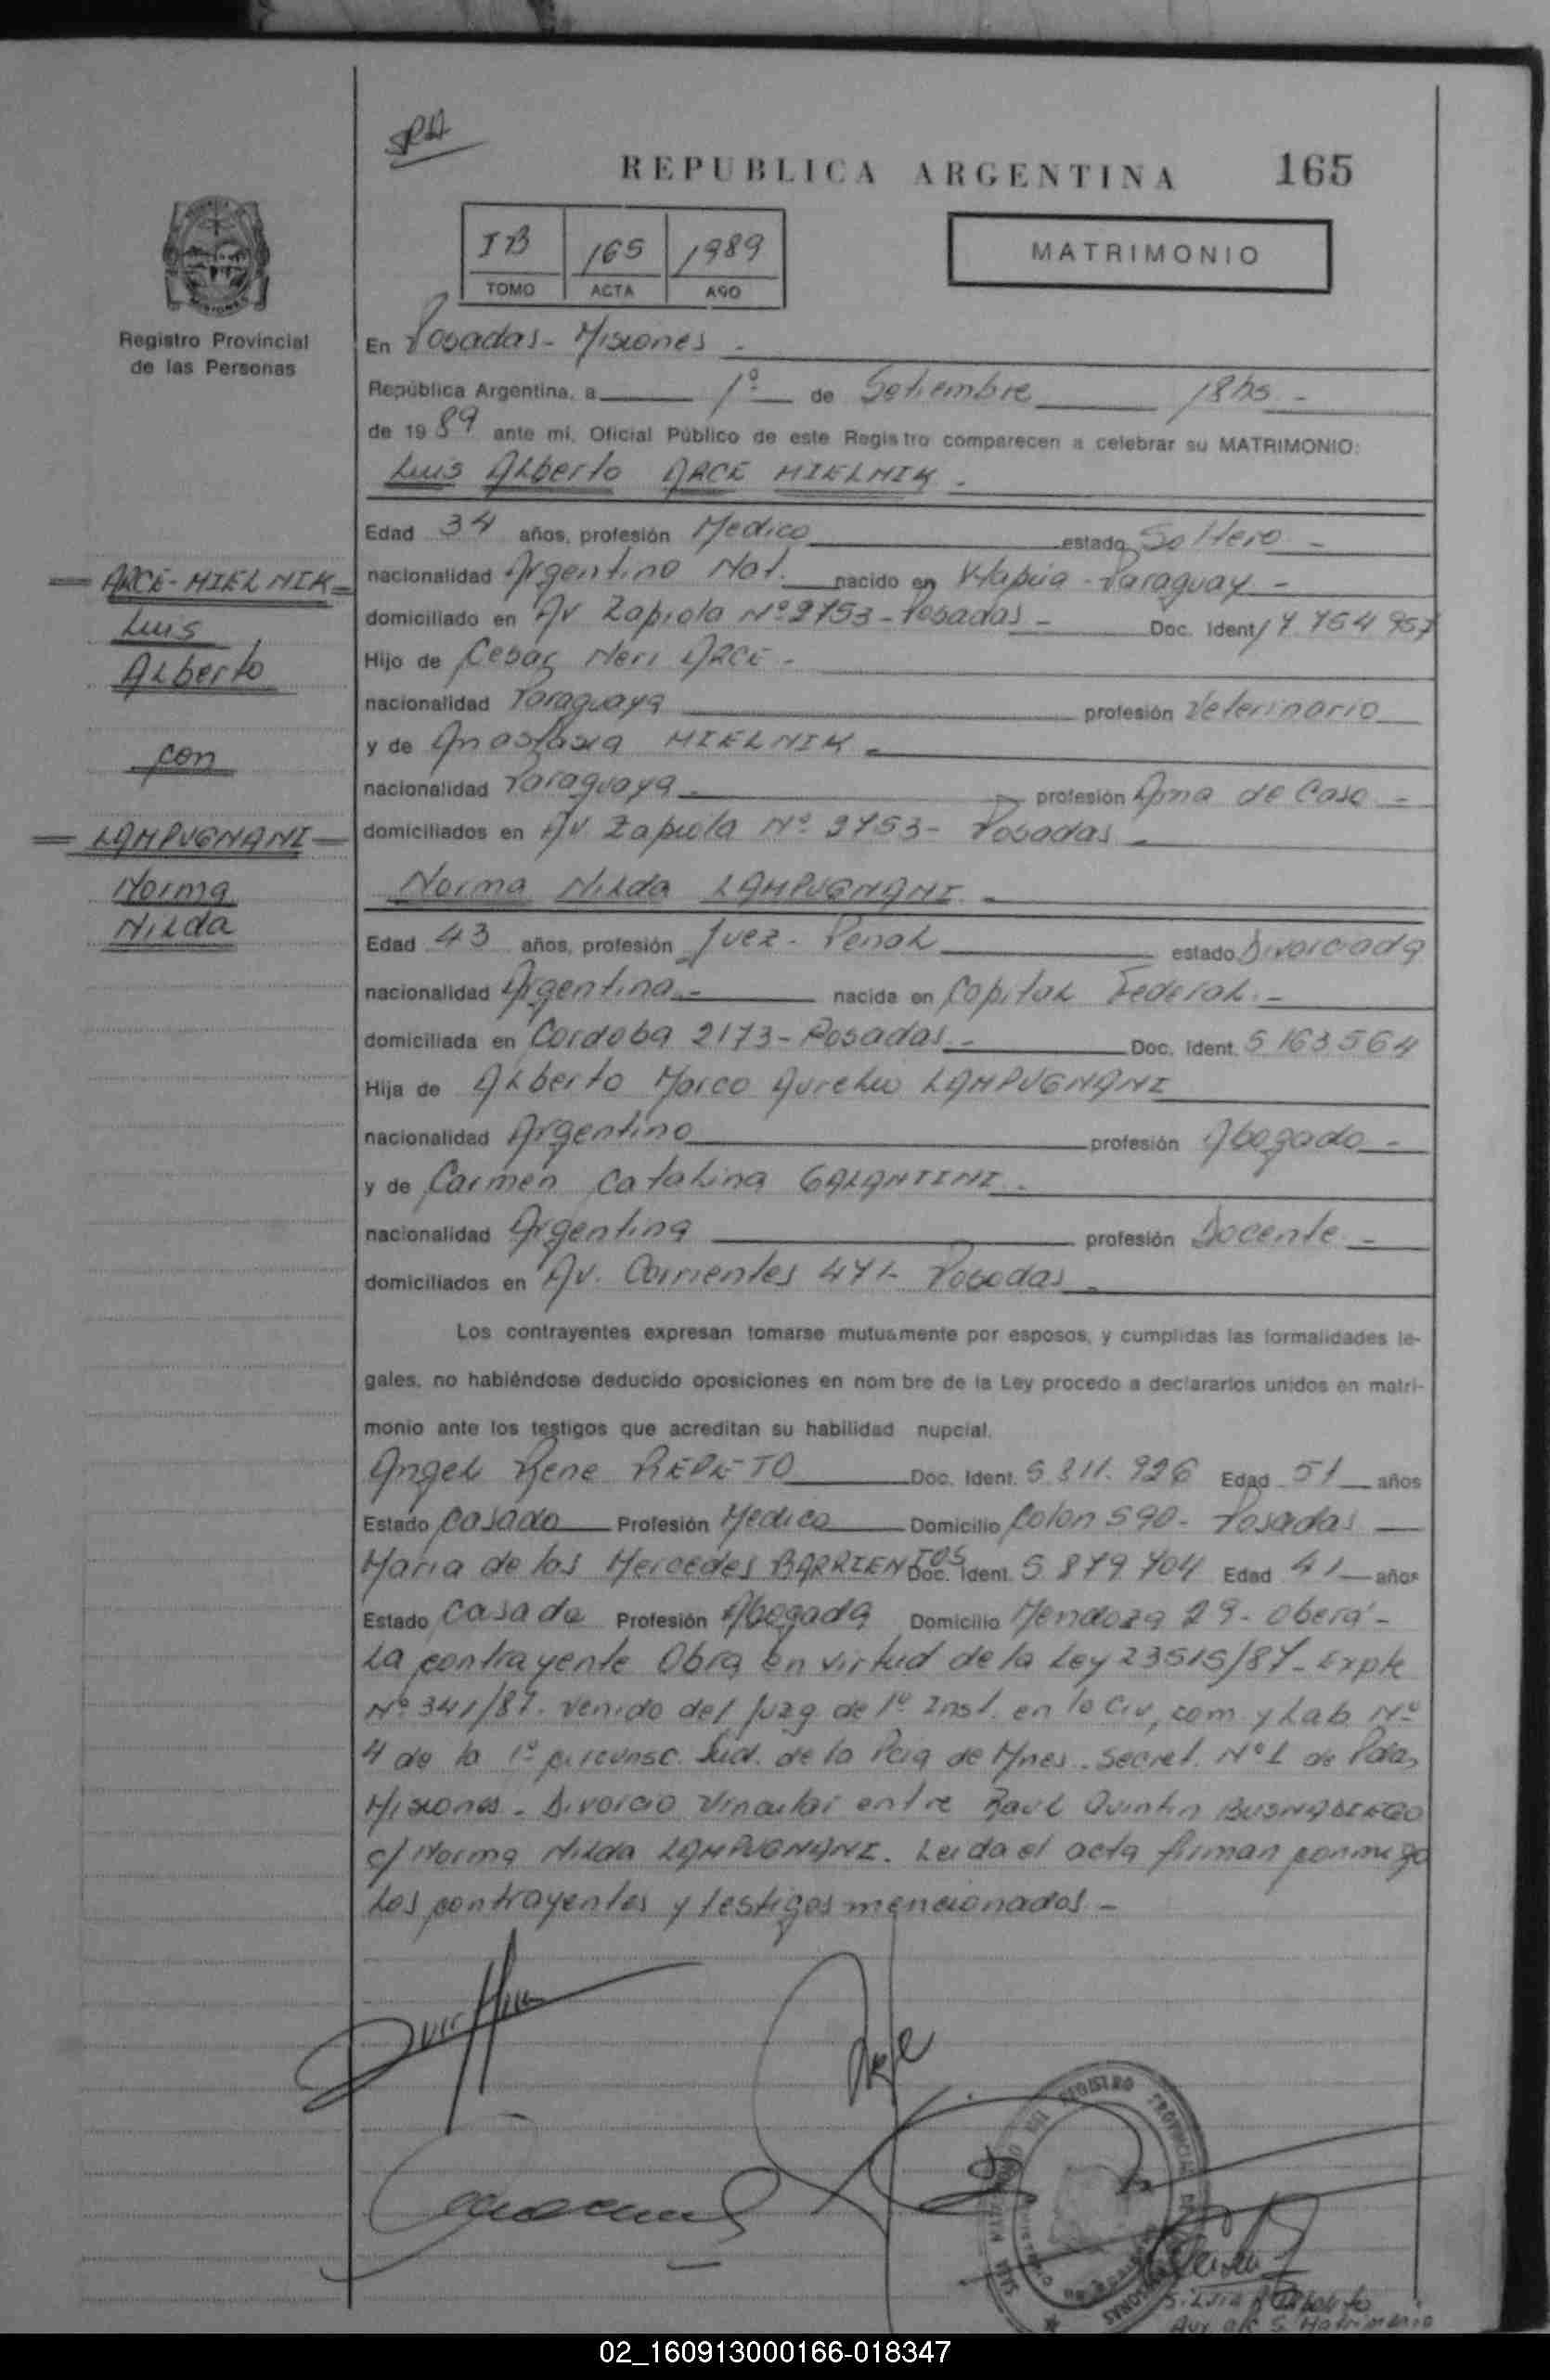 SRA
REPUBLICA ARGENTINA 165
IB 165 1989
TOMO ACTA AÑO
MATRIMONIO
Registro Provincial
de las Personas
En Posadas - Misiones -
República Argentina, a 1º de Setiembre 18hs -
de 1989 ante mi, Oficial Público de este Registro comparecen a celebrar su MATRIMONIO:
Luis Alberto ARCE MIELNIK -
Edad 34 años, profesión Medico estado Soltero -
nacionalidad Argentino Nat. nacido en Itapúa - Paraguay -
domiciliado en Av Zapiola Nº 2753 - Posadas - Doc. Ident
Hijo de Cesar Neri ARCE -
nacionalidad Paraguaya profesión Veterinario
y de Anastasia MIELNIK -
nacionalidad Paraguaya - profesión Ama de Casa -
domiciliados en Av. Zapiola Nº 2753 - Posadas -
ARCE - MIELNIK
Luis
Alberto
con
LAMPUGNANI
Norma
Nilda
Norma Nilda LAMPUGNANI -
Edad 43 años, profesión Juez - Penal estado Divorciada
nacionalidad Argentina - nacida en Capital Federal -
domiciliada en Cordoba 2173 - Posadas - Doc. Ident. 5 163 564
Hija de Alberto Marco Aurelio LAMPUGNANI
nacionalidad Argentino profesión Abogado -
y de Carmen Catalina GALANTINI -
nacionalidad Argentina profesión Docente -
domiciliados en Av. Corrientes 471 - Posadas -
Los contrayentes expresan tomarse mutuamente por esposos, y cumplidas las formalidades le-
gales, no habiéndose deducido oposiciones en nom bre de la Ley procedo a declararlos unidos en matri-
monio ante los testigos que acreditan su habilidad nupcial.
Angel Rene REPETO Doc. Ident. 5.811.926 Edad 51 años
Estado Casado Profesión Medico Domicilio Colon 590 - Posadas
Maria de las Mercedes BARRIENTOS Doc. Ident. 5 879 704 Edad 41 años
Estado Casada Profesión Abogada Domicilio Mendoza 29 - Oberá -
La contrayente Obra en virtud de la Ley 23515/87 - Expte
Nº 341/87. venido del Juzg de 1º Inst. en lo Civ, com. y Lab. Nº
4 de la 1º circunsc. Jud. de la Pcia de Mnes. Secret. Nº 1 de Pdas,
Misiones - Divorcio Vincular entre Raul Quintin BUSNADIEGO
c/ Norma Nilda LAMPUGNANI. Leida el acta firman conmigo
Los contrayentes y testigos mencionados -
REGISTRO PROVINCIAL DE LAS PERSONAS
02_160913000166-018347